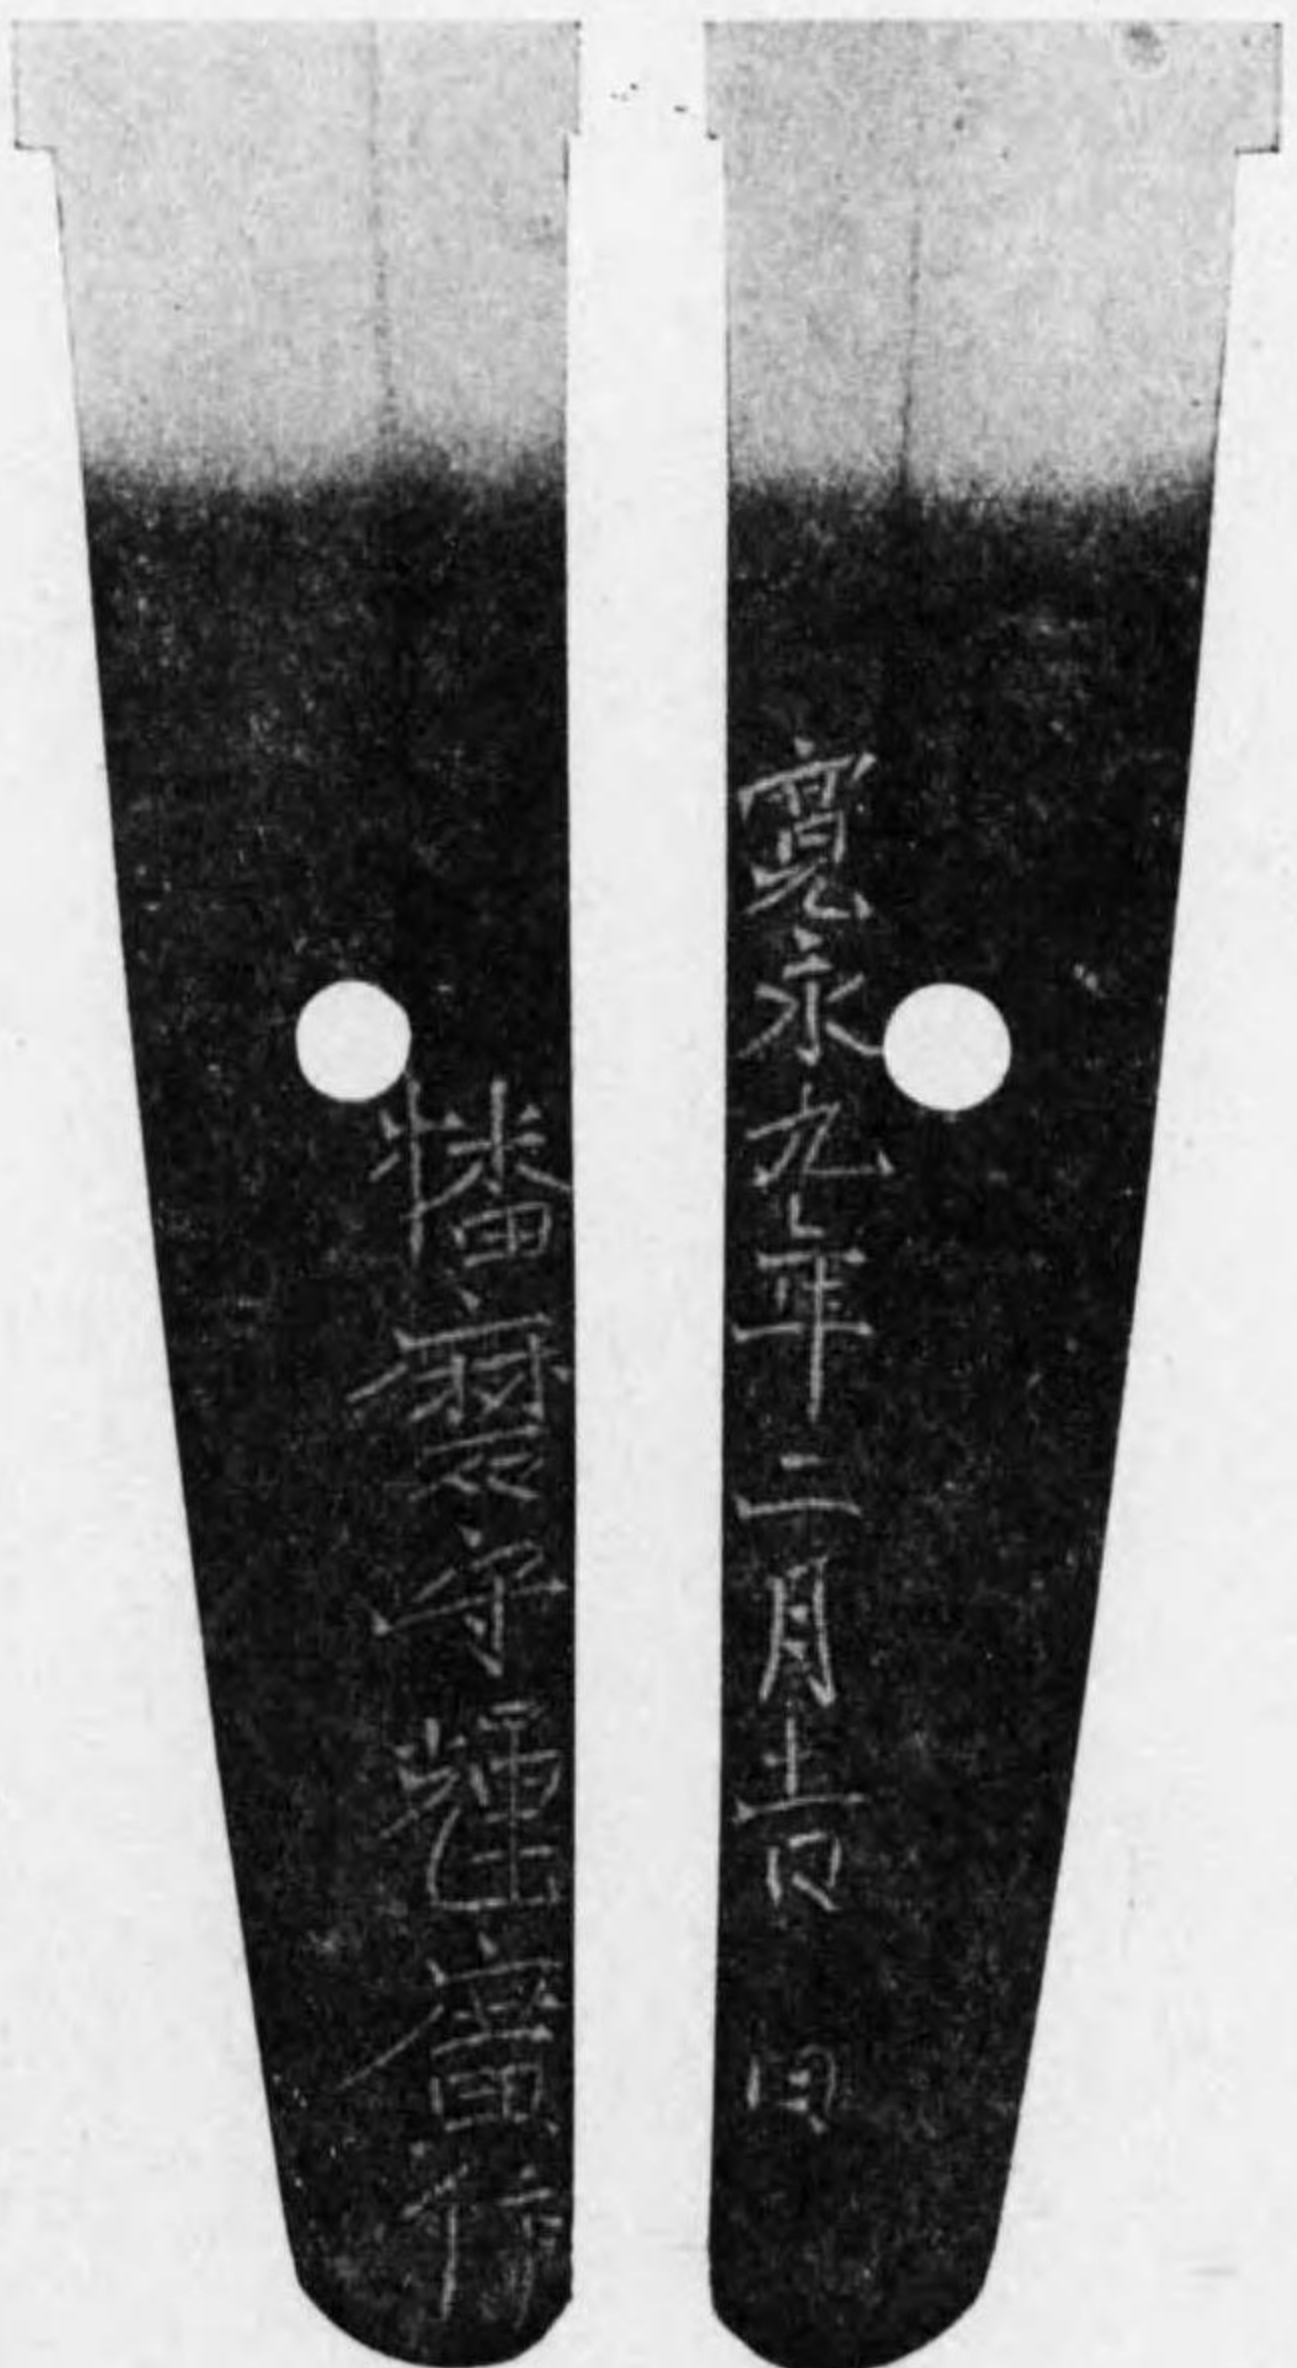 寛永九年二月吉日
播磨守輝廣作